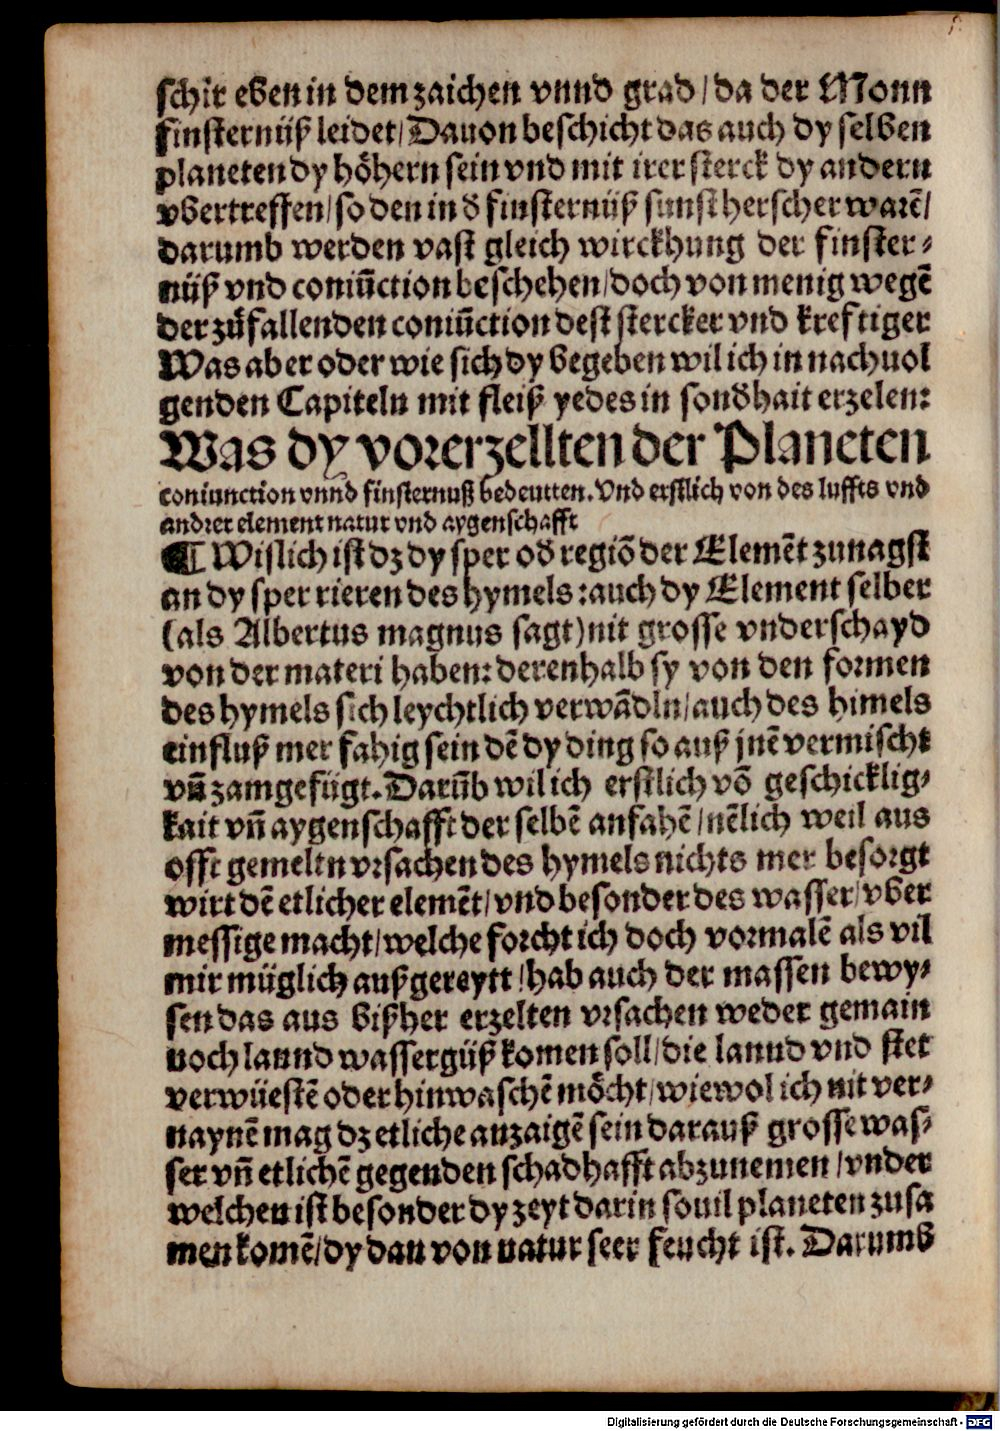 schir eben in dem zaichen vnnd grad / da der Monn
finsternüß leidet / Dauon beschicht das auch dy selben
planeten dy höhern sein vnd mit irer sterck dy andern
vbertreffen / so den in d̕ finsternüß sunst herscher warē /
darumb werden vast gleich wirckhung der finster⸗
nüß vnd coniūction beschehen / doch von menig wegē
der zůfallenden coniūction dest stercker vnd kreftiger
Was aber oder wie sich dy begeben wil ich in nachuol
genden Capiteln mit fleiß yedes in sond̕hait erzelen:
Was dy vorerzellten der Planeten
coniunction vnnd finsternuß bedeutten. Vnd erstlich von des luffts vnd
andrer element natur vnd aygenschafft
¶ Wislich ist dz dy sper od̕ regiō der Elemēt zunagst
an dy sper rieren des hymels : auch dy Element selber
(als Albertus magnus sagt) nit grosse vnderschayd
von der materi haben: derenhalb sy von den formen
des hymels sich leychtlich verwādln / auch des himels
einfluß mer fahig sein dē dy ding so auß jnē vermischt
vn̄ zamgefügt. Darūb wil ich erstlich vō geschicklig⸗
kait vn̄ aygenschafft der selbē anfahē / nēlich weil aus
offt gemeltn vrsachen des hymels nichts mer besorgt
wirt dē etlicher elemēt / vnd besonder des wasser / vber
messige macht / welche forcht ich doch vormalē als vil
mir müglich außgereytt / hab auch der massen bewy⸗
sen das aus bißher erzelten vrsachen weder gemain
noch lannd wassergüß komen soll / die lannd vnd stet
verwüestē oder hinwaschē möcht / wiewol ich nit ver⸗
naynē mag dz etliche anzaigē sein darauß grosse was⸗
ser vn̄ etlichē gegenden schadhafft abzunemen / vnder
welchen ist besonder dy zeyt darin souil planeten zusa
men komē / dy dan von natur seer feucht ist. Darumb
Digitalisierung gefördert durch die Deutsche Forschungsgemeinschaft - DFG